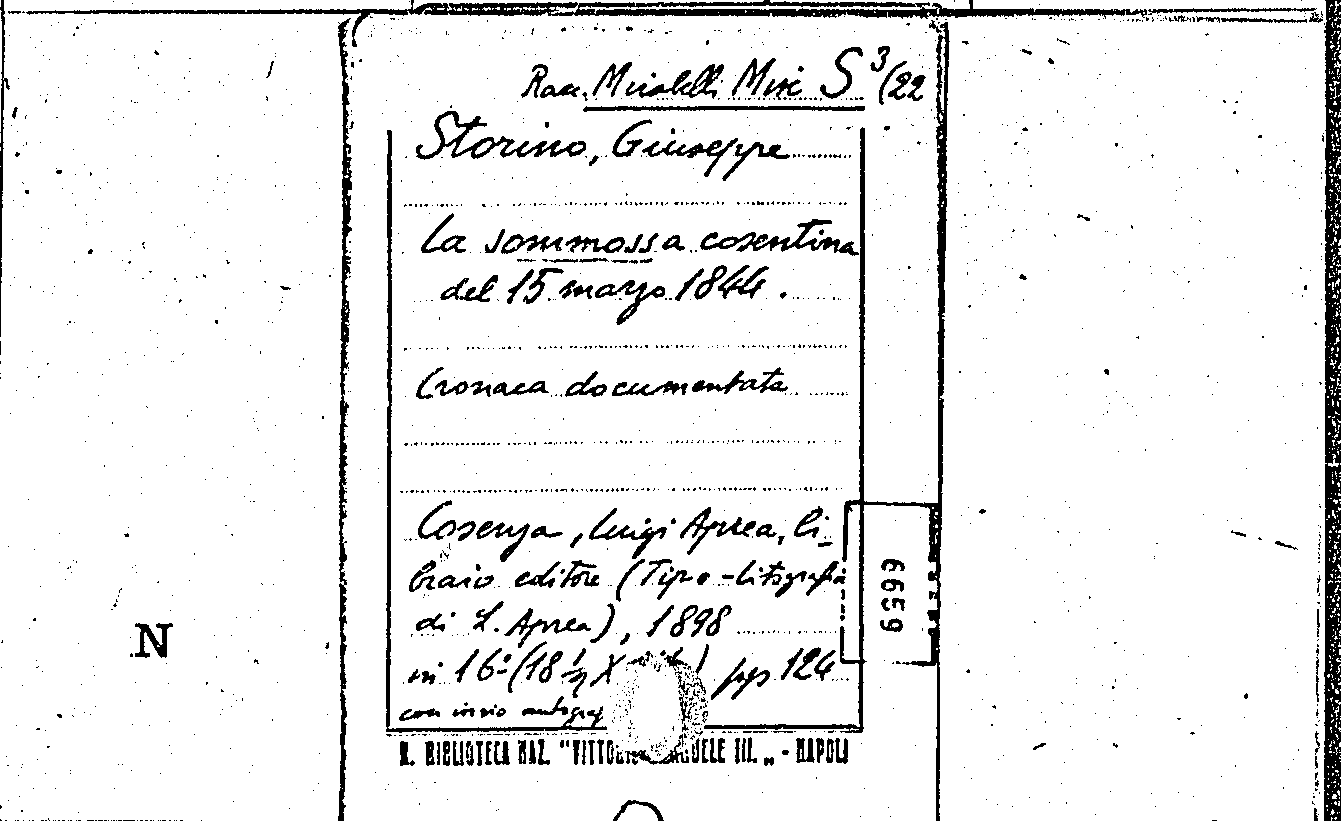 Racc. Miralelli Mise S³/22
Storino, Giuseppe
La sommossa cosentina
del 15 marzo 1844.
Cronaca documentata
Cosenza, Luigi Aprea, li-
braio editore (Tipo-litografia
di L. Aprea), 1898
in 16º (18 ½ X pp 124
con invio autograf
6659
N
R. BIBLIOTECA NAZ. "VITTORIO EMANUELE III." - NAPOLI